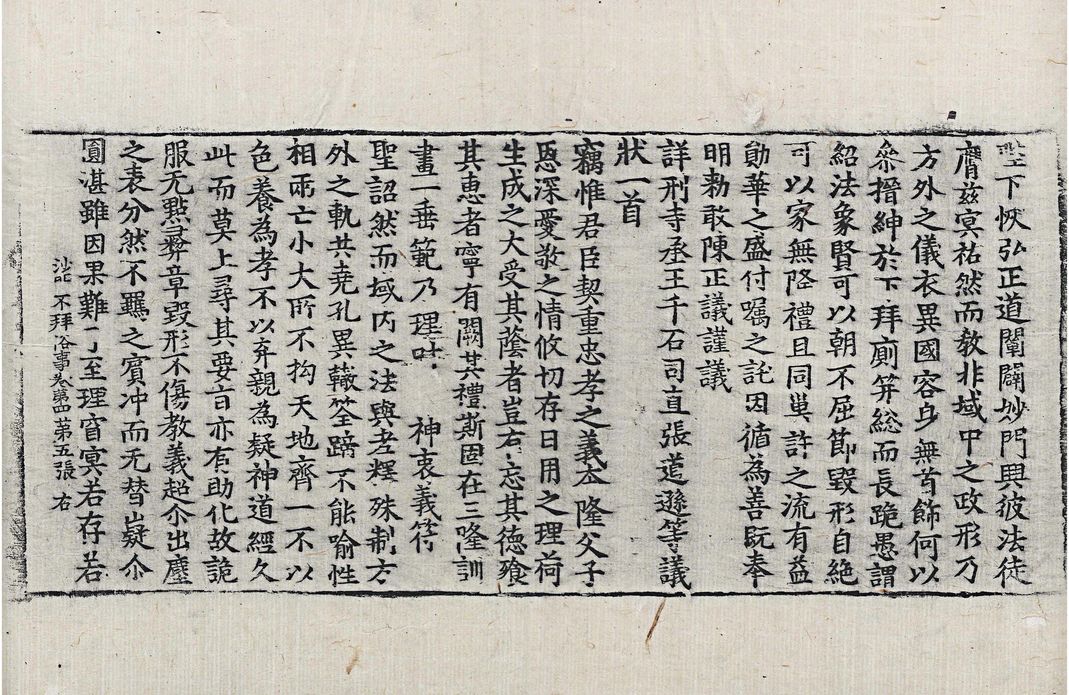 陛下恢弘正道闡闢妙門興彼法徒
膺兹冥祐然而敎非域中之政形乃
方外之儀衣異國容身無首飾何以
叅搢紳於下拜廁笄総而長跪愚謂
紹法象賢可以朝不屈節毀形自絶
可以家無降禮且同巢許之流有益
勛華之盛付囑之託因循為善旣奉
明勑敢陳正議謹議
詳刑寺丞王千石司直張道遜等議
狀一首
竊惟君臣契重忠孝之義夲隆父子
恩深愛敬之情攸切存日用之理荷
生成之大受其蔭者豈忘其德飡
其惠者寧有闕其禮斯固在三隆訓
畫一垂範乃理 神衷義符
聖詔然而域內之法與老釋殊制方
外之軌共堯孔異轍筌蹄不能喻性
相兩亡小大所不拘天地齊一不以
色養為孝不以弃親為疑神道經久
此而莫上尋其要旨亦有助化故詭
服无點彛章毀形不傷教義超尒出塵
之表分然不羈之賓冲而无替嶷尒
圓湛雖因果難了至理窅冥若存若
沙門不拜俗事卷第四 第五張 右